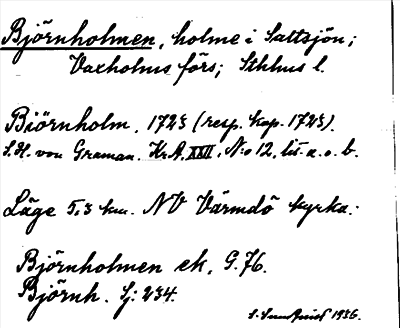 Björnholmen, holme i Saltsjön;
Vaxholms förs; Sthlms l.
Biörnholm, 1723 (resp. kop. 1723).
S.H. von Graman. Kr.A. XXII, N:o 12, lit. a. o. b.
Läge 5,3 km. NV Värmdö kyrka.
Björnholmen ek, G. 76.
Björnh. Sj: 234.
1936.